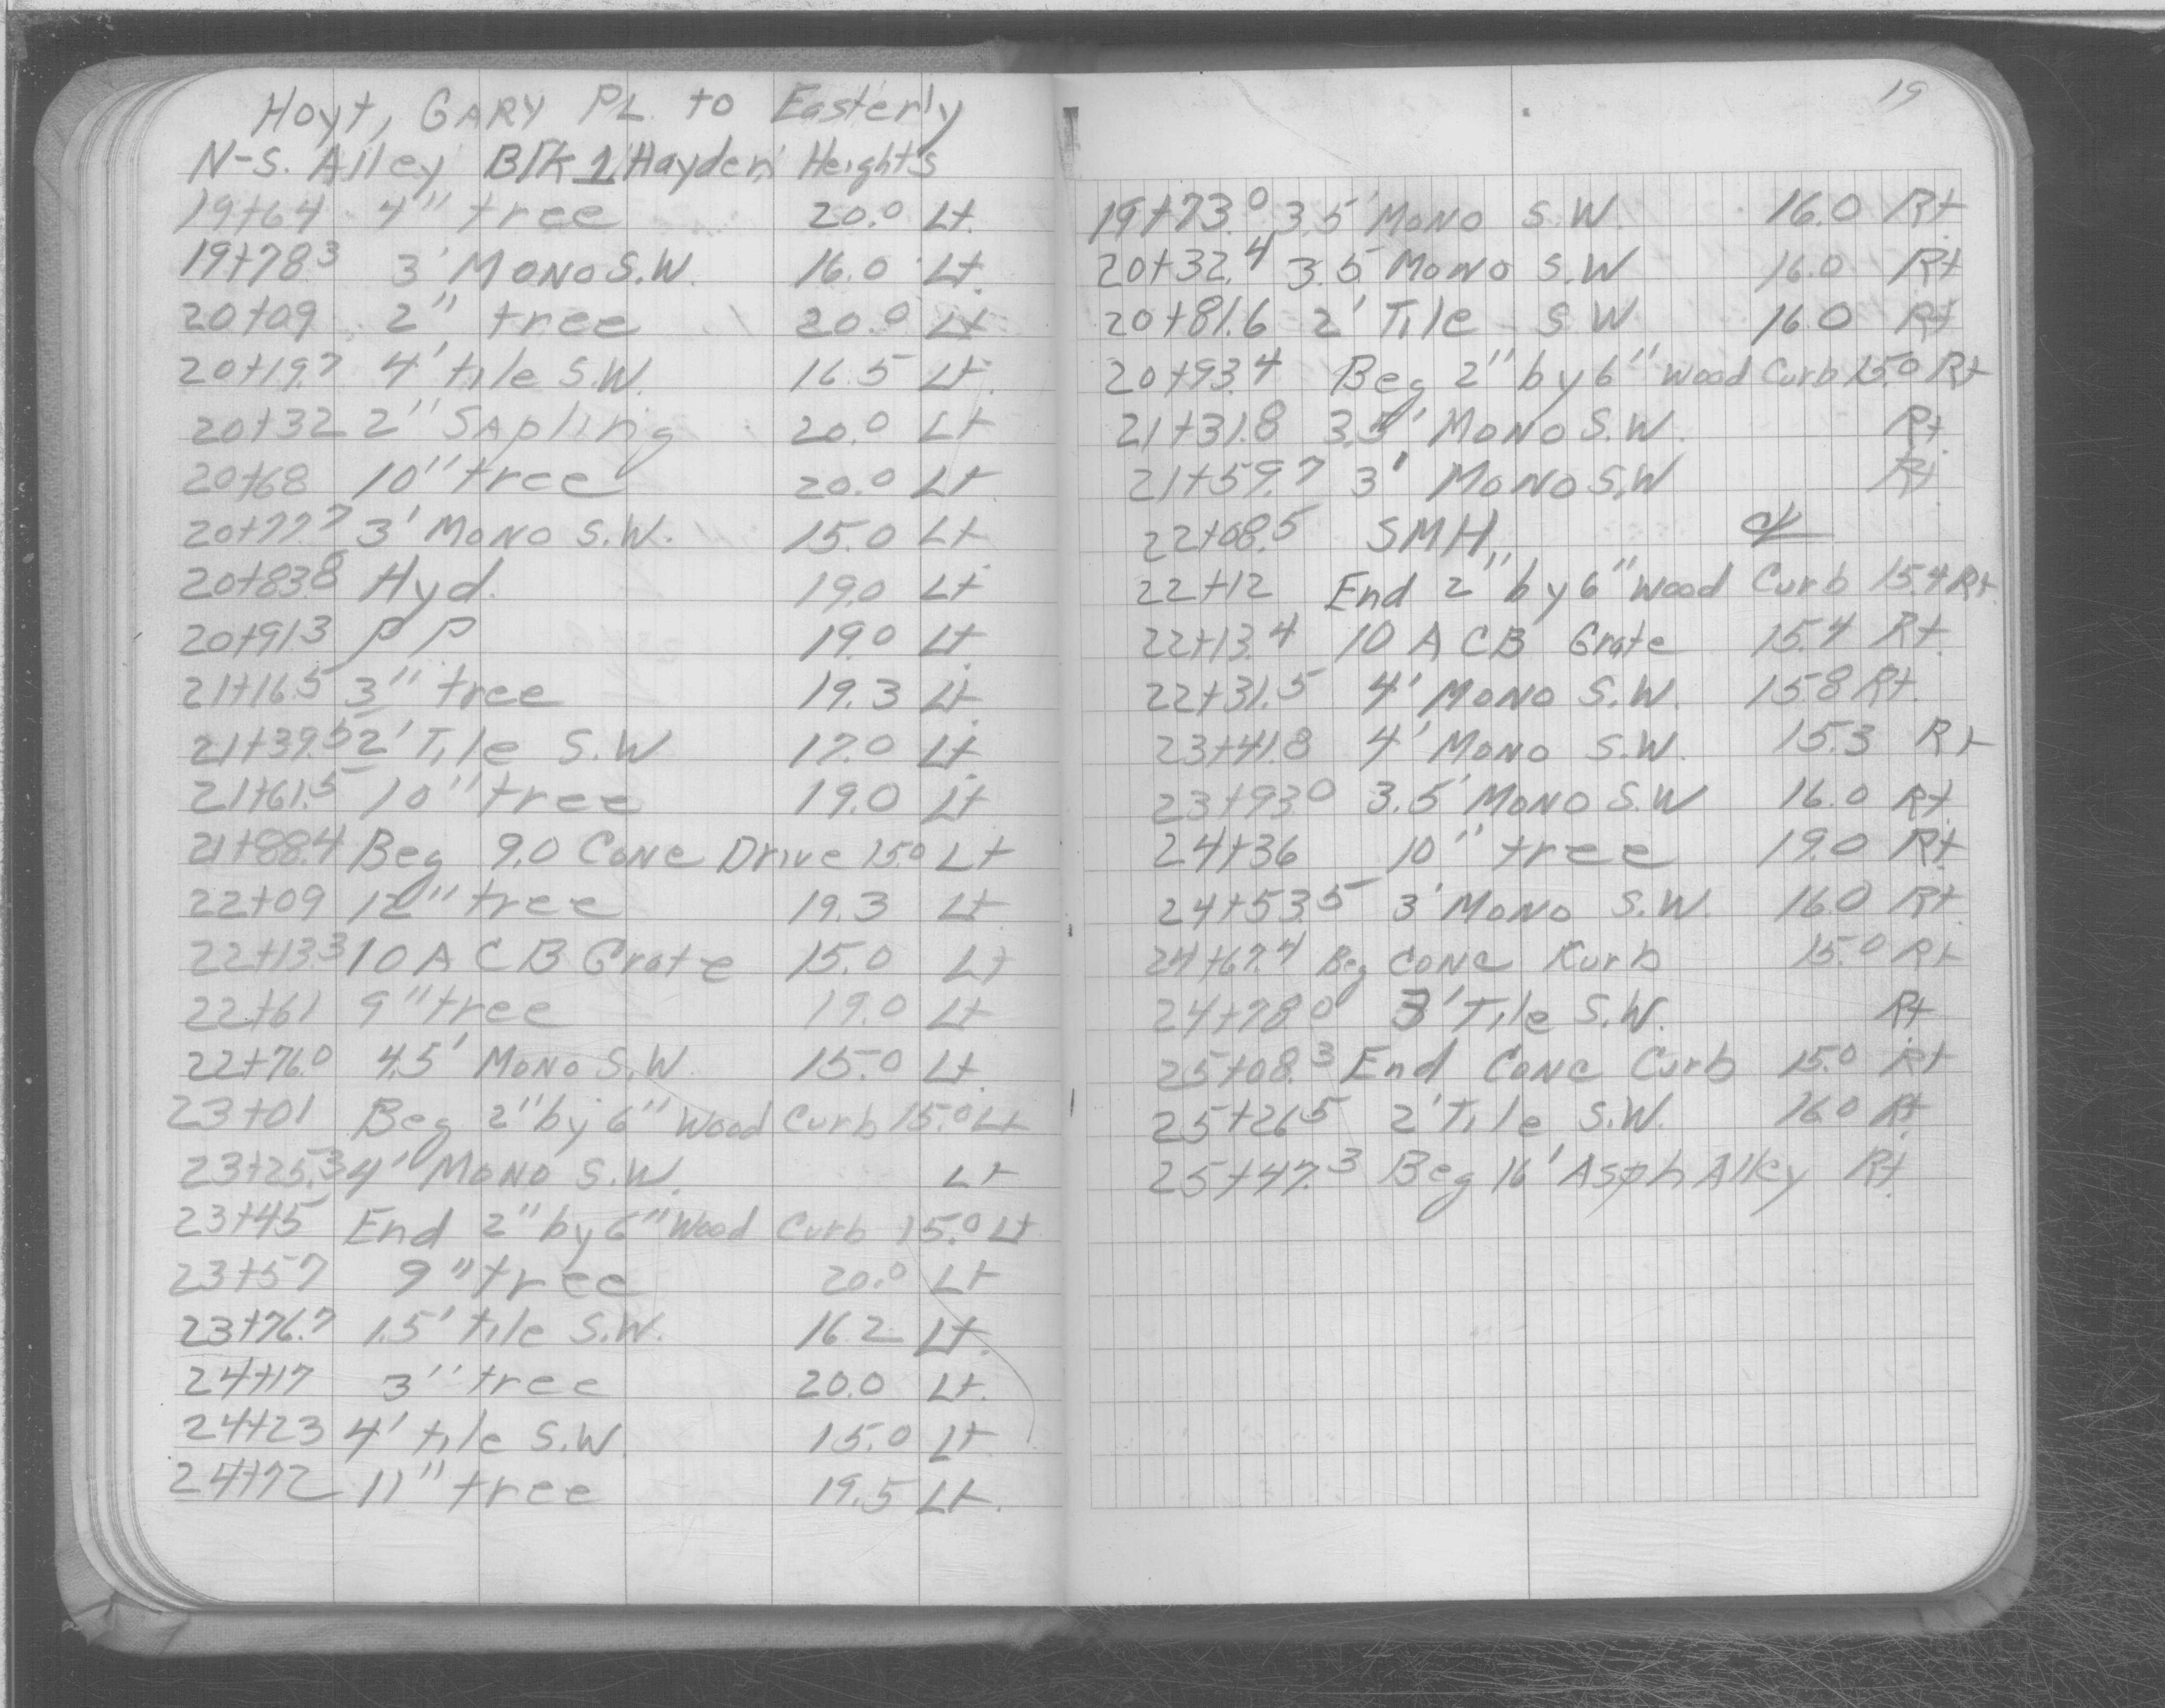 Hoyt, GARY PL. to Easterly
N-S. Alley Blk 1 Hayden Heights
19+64 4" tree 20.0 Lt.
19+78.3 3' MONO S.W. 16.0 Lt.
20+09 2" tree 20.0 Lt
20+19.7 4' tile S.W. 16.5 Lt.
20+32 2" SApling 20.0 Lt
20+68 10" tree 20.0 Lt.
20+77.7 3' MONO S.W. 15.0 Lt
20+83.8 Hyd. 19.0 Lt
20+91.3 PP 19.0 Lt.
21+16.5 3" tree 19.3 Lt.
21+39.5 2' Tile S.W 17.0 Lt.
21+61.5 10" tree 19.0 Lt
21+88.4 Beg 9.0 Conc Drive 15.0 Lt
22+09 12" tree 19.3 Lt
22+13.3 10 A CB Grate 15.0 Lt
22+61 9" tree 19.0 Lt.
22+76.0 4.5' MONO S.W. 15.0 Lt.
23+01 Beg 2" by 6" Wood Curb 15.0 Lt
23+25.3 4' MONO S.W. Lt
23+45 End 2" by 6" Wood Curb 15.0 Lt
23+57 9" tree 20.0 Lt
23+76.7 1.5' tile S.W. 16.2 Lt.
24+17 3" tree 20.0 Lt.
24+23 4' tile S.W. 15.0 Lt
24+72 11" tree 19.5 Lt.
19
19+73.0 3.5' MONO S.W. 16.0 Rt
20+32.4 3.5' MONO S.W 16.0 Rt
20+81.6 2' Tile S W 16.0 Rt
20+93.4 Beg 2" by 6" Wood Curb 15.0 Rt
21+31.8 3.5' MONO S.W. Rt
21+59.7 3' MONO S.W Rt
22+08.5 SMH ₵
22+12 End 2" by 6" Wood Curb 15.4 Rt
22+13.4 10 A CB Grate 15.4 Rt.
22+31.5 4' MONO S.W. 15.8 Rt.
23+41.8 4' MONO S.W. 15.3 Rt
23+93.0 3.5' MONO S.W 16.0 Rt
24+36 10" tree 19.0 Rt.
24+53.5 3' MONO S.W. 16.0 Rt.
24+67.4 Beg CONC Kurb 15.0 Rt
24+78.0 3' Tile S.W. Rt
25+08.3 End Conc Curb 15.0 Rt
25+26.5 2' Tile S.W. 16.0 Rt.
25+47.3 Beg 16' Asph Alley Rt.